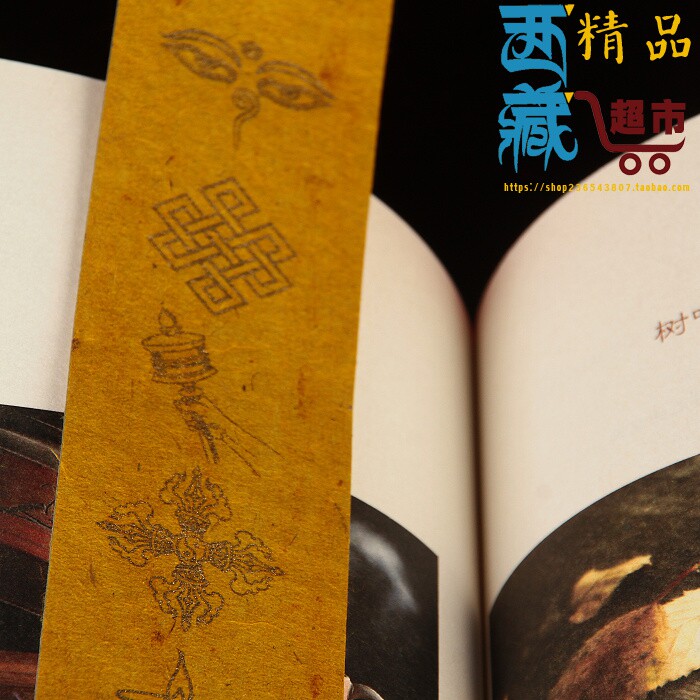 西藏
精品
超市
https://shop286543807.taobao.com
树叶